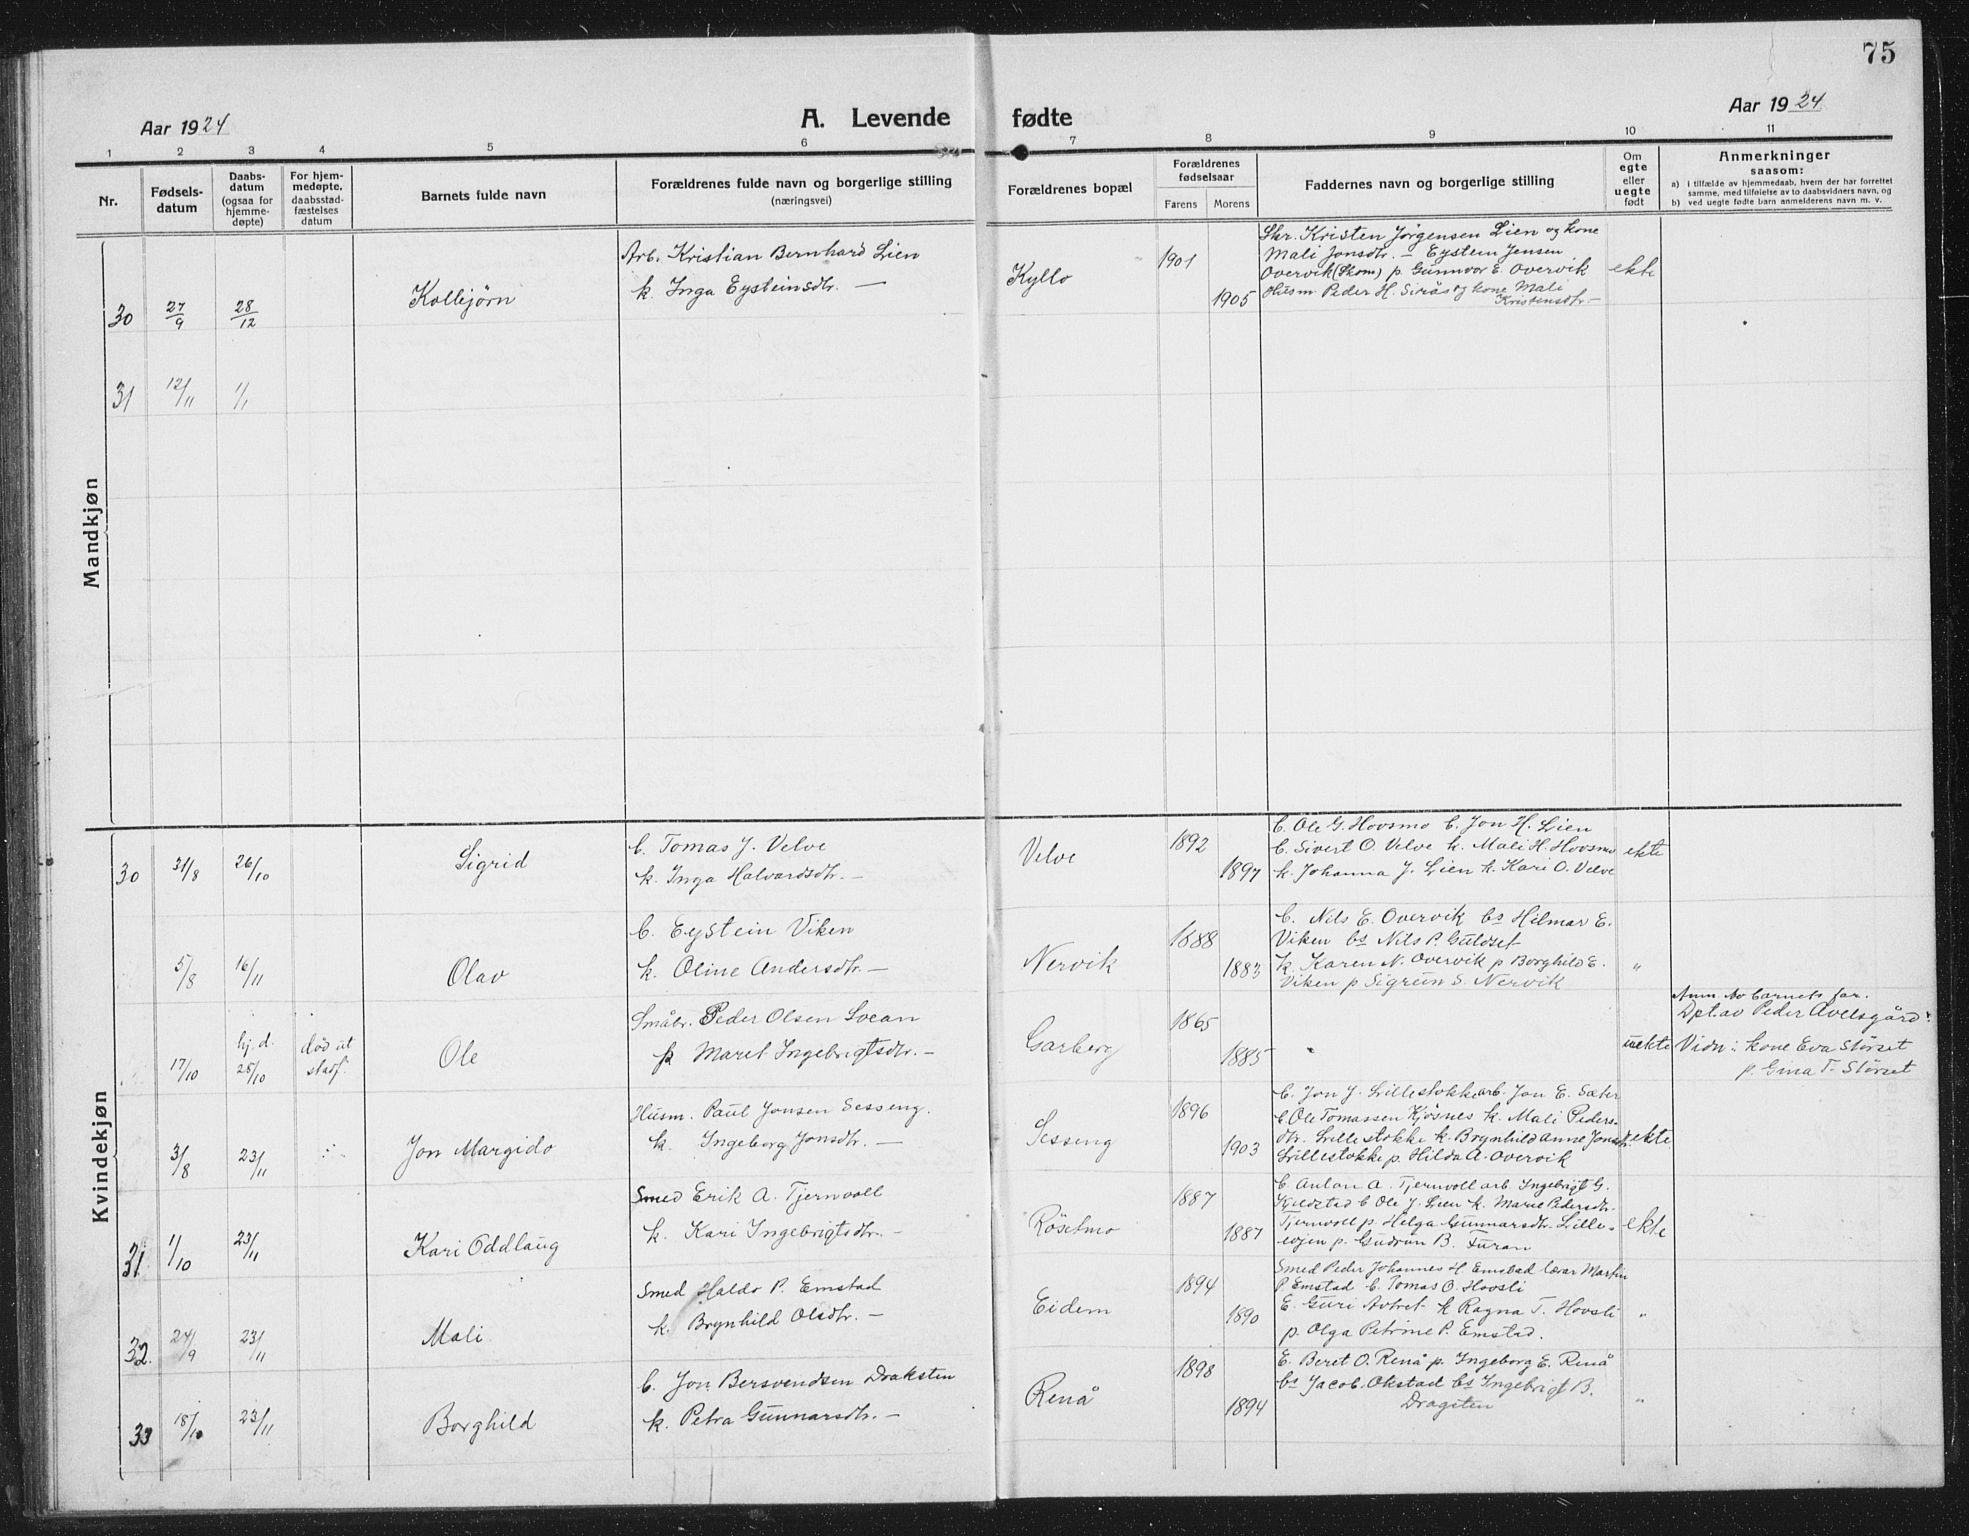 75
Aar 1924
A. Levende fødte
Aar 1924
1 2 3 4 5 6 7 8 9 10 11
Nr.
Fødsels-
datum
Daabs-
datum
(ogsaa for
hjemme-
døpte)
For hjem-
medøpte,
daabsstad-
fæstelses
datum
Barnets fulde navn
Forældrenes fulde navn og borgerlige stilling
(næringsvei)
Forældrenes bopæl
Forældrenes
fødselsaar
Farens Morens
Faddernes navn og borgerlige stilling
Om
egte
eller
uegte
født
Anmerkninger
saasom:
a) i tilfælde av hjemmedaab, hvem der har forrettet
samme, med tilføielse av to daabsvidners navn, og
b) ved uegte fødte barn anmelderens navn m. v.
Mandkjøn
30 27/9 28/12 Kollbjørn
Arb. Kristian Bernhard Lien
k. Inga Eysteinsdtr. —
Kyllo
1901
1905
Skr. Kristen Jørgensen Lien og kone
Mali Jonsdtr. — Eystein Jensen
Overvik (Skom) p. Gunnvor E. Overvik
Husm Peder H. Sirås og kone Mali
Kristensdtr —
ekte
31 12/11 1/1
Kvindekjøn
30 31/8 26/10 Sigrid
b. Tomas J. Velve
k. Inga Halvardsdtr. —
Velve
1892
1897
b. Ole G. Hovsmo b. Jon H. Lien
b. Sivert O. Velve k. Mali H. Hovsmo
k. Johanna J. Lien k. Kari O. Velve
ekte
5/8 16/11 Olav
b. Eystein Viken
k. Oline Andersdtr. —
Nervik
1888
1883
b. Nils E. Overvik bs Hilmar E.
Viken bs Nils P. Guldset
k. Karen N. Overvik p Borghild E.
Viken p Sigrun S. Nervik
"
17/10 hj. d. 28/10 død ut stadf. Ole
Småbr. Peder Olsen Svean
p Maret Ingebrigtsdtr. —
Garberg
1865
1885
uekte
Anm. Av barnets far.
Dpt av Peder Avelsgård.
Vidn: kone Eva Størset
p. Gina T. Størset
3/8 23/11 Jon Margido
Husm. Paul Jonsen Sesseng.
k. Ingeborg Jonsdtr. —
Sesseng
1896
1903
b. Jon J. Lillestokke arb. Jon E. Sæter
b Ole Tomassen Kjøsnes k. Mali Peders-
dtr. Lillestokke k. Brynhild Anne Jonsdtr
Lillestokke p. Hilda A. Overvik
ekte
31 1/10 23/11 Kari Oddlaug
Smed Erik A. Tjernvoll
k. Kari Ingebrigtsdtr. —
Røsetmo
1887
1887
b. Anton A. Tjernvoll arb. Ingebrigt G.
Kjeldstad b Ole J. Lien k. Marie Pedersdtr.
Tjernvoll p. Helga Gunnarsdtr. Lille-
evjen p. Gudrun B. Furan
ekte
32. 24/9 23/11 Mali
Smed Haldo P. Emstad
k. Brynhild Olsdtr. —
Eidem
1894
1890
Smed Peder Johannes H Emstad lærar Martin
P. Emstad b. Tomas O. Hovsli
E. Guri Avtret k Ragna T. Hovsli
p. Olga Petrine P. Emstad.
"
33 18/10 23/11 Borghild
b. Jon Bersvendsen Draksten
k. Petra Gunnarsdtr. —
Renå
1898
1894
E. Beret O. Renå p. Ingeborg E. Renå
bs Jacob. Okstad bs Ingebrigt B.
Dragsten
"